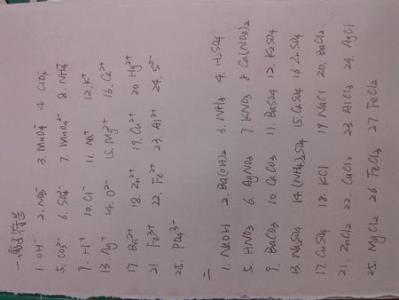 一. 离子符号
1. OH⁻ 2. NO₃⁻ 3. MnO₄⁻ 4. ClO₃⁻
5. CO₃²⁻ 6. SO₄²⁻ 7. MnO₄²⁻ 8. NH₄⁺
9. H⁺ 10. Cl⁻ 11. Na⁺ 12. K⁺
13. Ag⁺ 14. O²⁻ 15. Mg²⁺ 16. Ca²⁺
17. Ba²⁺ 18. Zn²⁺ 19. Cu²⁺ 20. Hg²⁺
21. Fe³⁺ 22. Fe²⁺ 23. Al³⁺ 24. S²⁻
25. PO₄³⁻
二.
1. NaOH 2. Ba(OH)₂ 3. NH₃ 4. H₂SO₄
5. HNO₃ 6. AgNO₃ 7. KNO₃ 8. Cu(NO₃)₂
9. BaCO₃ 10. CaCO₃ 11. BaSO₄ 12. K₂SO₄
13. Na₂SO₄ 14. (NH₄)₂SO₄ 15. CaSO₄ 16. ZnSO₄
17. CuSO₄ 18. KCl 19. NaCl 20. BaCl₂
21. ZnCl₂ 22. CuCl₂ 23. AlCl₃ 24. AgCl
25. MgCl₂ 26. FeCl₃ 27. FeCl₂